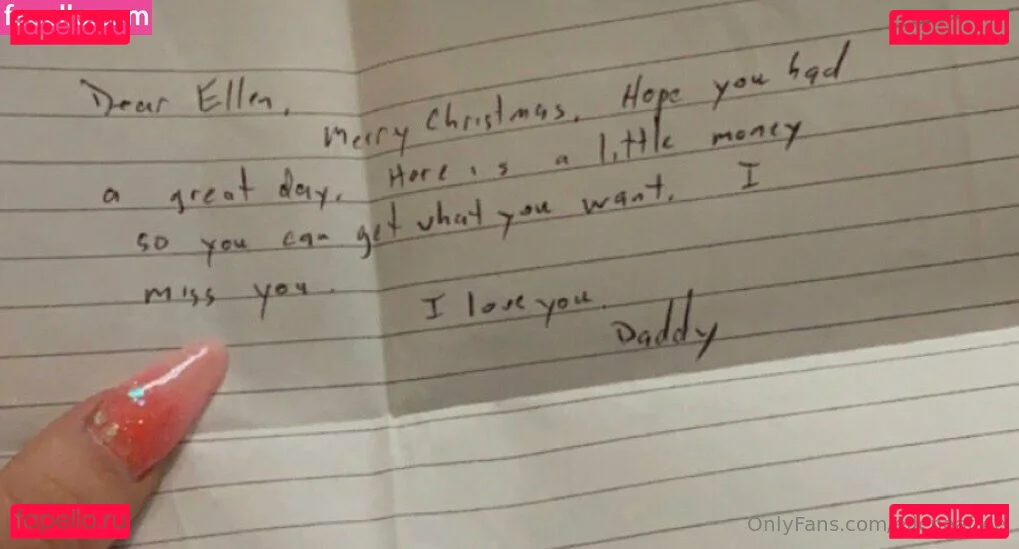 fapello.ru
fapello.ru
Dear Ellen,
Merry Christmas. Hope you had
a great day. Here is a little money
so you can get what you want. I
miss you.
I love you.
Daddy
fapello.ru
fapello.ru
OnlyFans.com/